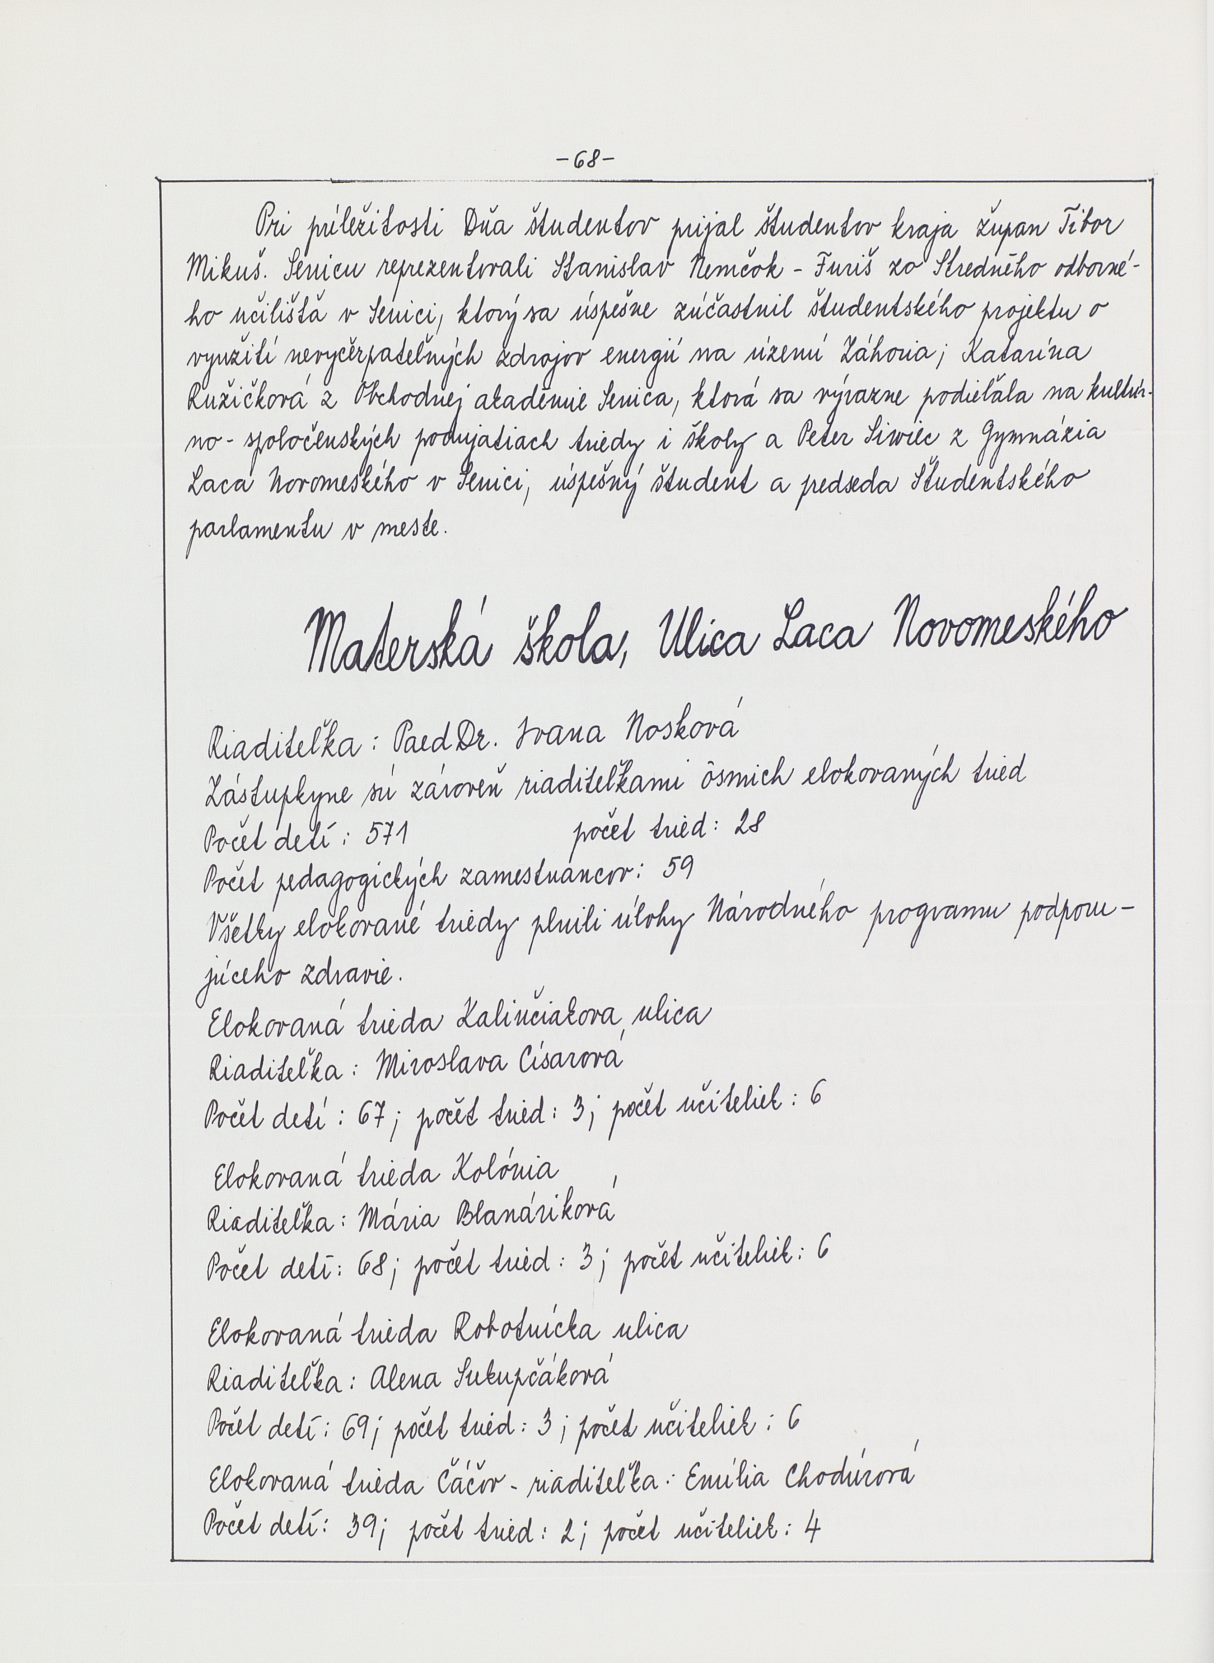 -68-
Pri príležitosti Dňa študentov prijal študentov kraja župan Tibor
Mikuš. Senicu reprezentovali Stanislav Nemčok - Furiš zo Stredného odborné-
ho učilišťa v Senici, ktorý sa úspešne zúčastnil študentského projektu o
využití nevyčerpateľných zdrojov energií na území Záhoria; Katarína
Ružičková z Obchodnej akadémie Senica, ktorá sa výrazne podieľala na kultúr-
no-spoločenských podujatiach triedy i školy a Peter Siwiec z Gymnázia
Laca Novomeského v Senici, úspešný študent a predseda Študentského
parlamentu v meste.
Materská škola, Ulica Laca Novomeského
Riaditeľka: PaedDr. Ivana Nosková
Zástupkyne sú zároveň riaditeľkami ôsmich elokovaných tried
Počet detí: 571 počet tried: 28
Počet pedagogických zamestnancov: 59
Všetky elokované triedy plnili úlohy Národného programu podporu-
júceho zdravie.
Elokovaná trieda Kalinčiakova ulica
Riaditeľka: Miroslava Císarová
Počet detí: 67; počet tried: 3; počet učiteliek: 6
Elokovaná trieda Kolónia
Riaditeľka: Mária Blanáriková
Počet detí: 68; počet tried: 3; počet učiteliek: 6
Elokovaná trieda Robotnícka ulica
Riaditeľka: Alena Sukupčáková
Počet detí: 69; počet tried: 3; počet učiteliek: 6
Elokovaná trieda Čáčov - riaditeľka: Emília Chodúrová
Počet detí: 39; počet tried: 2; počet učiteliek: 4